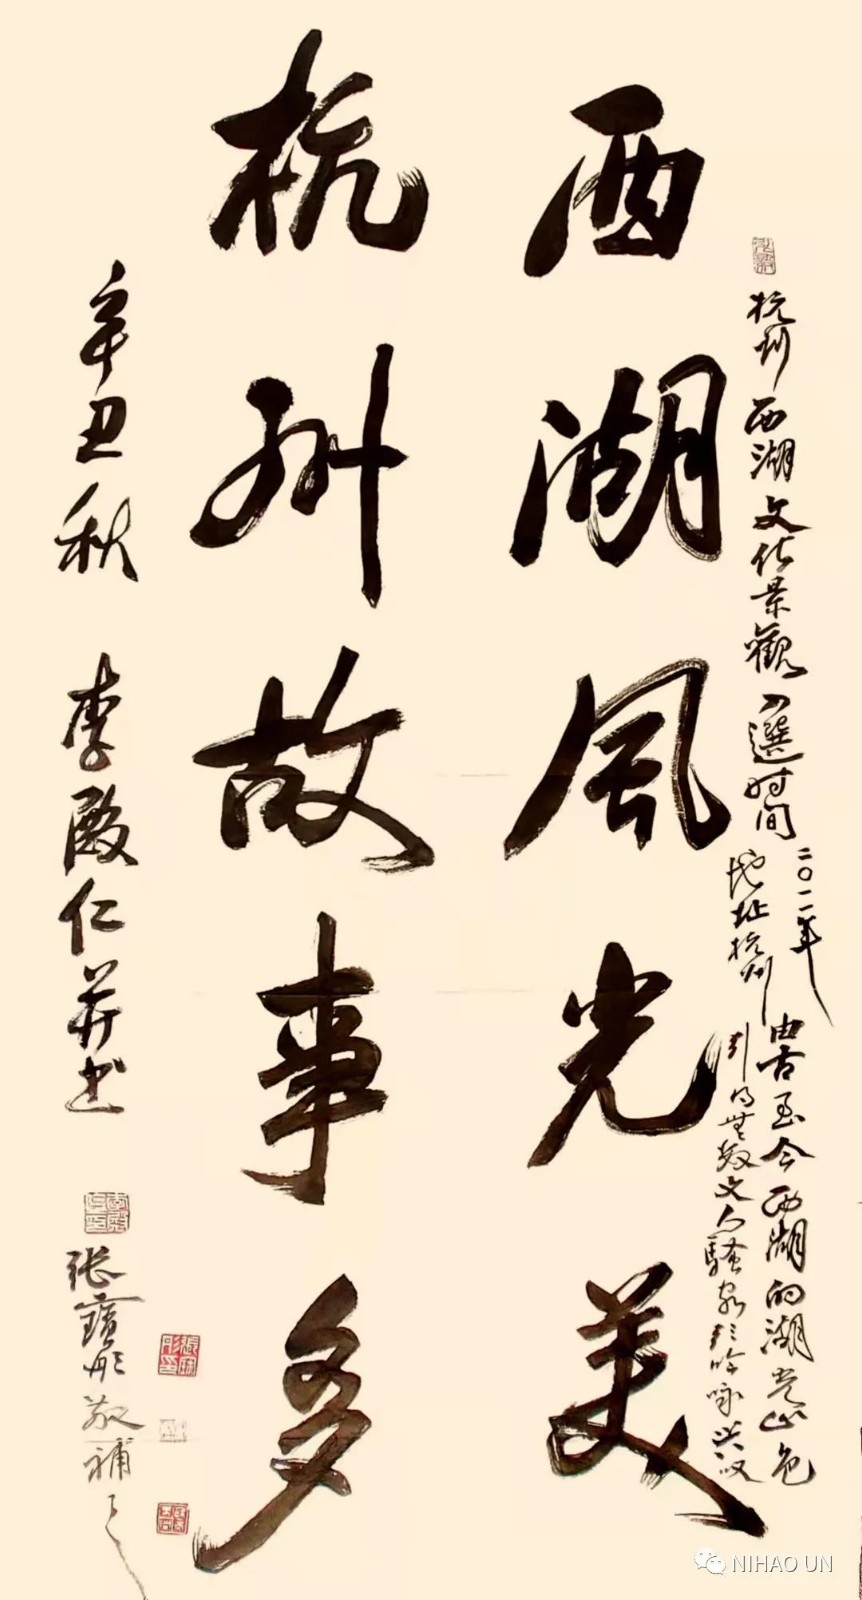 杭州西湖文化景觀入選时间
二〇一一年
地址杭州
由古至今西湖的湖光山色
引得無數文人騷客
吟咏
西湖風光美
杭州故事多
辛丑秋 李殿仁并书
張寶彤敬補之
NIHAO UN